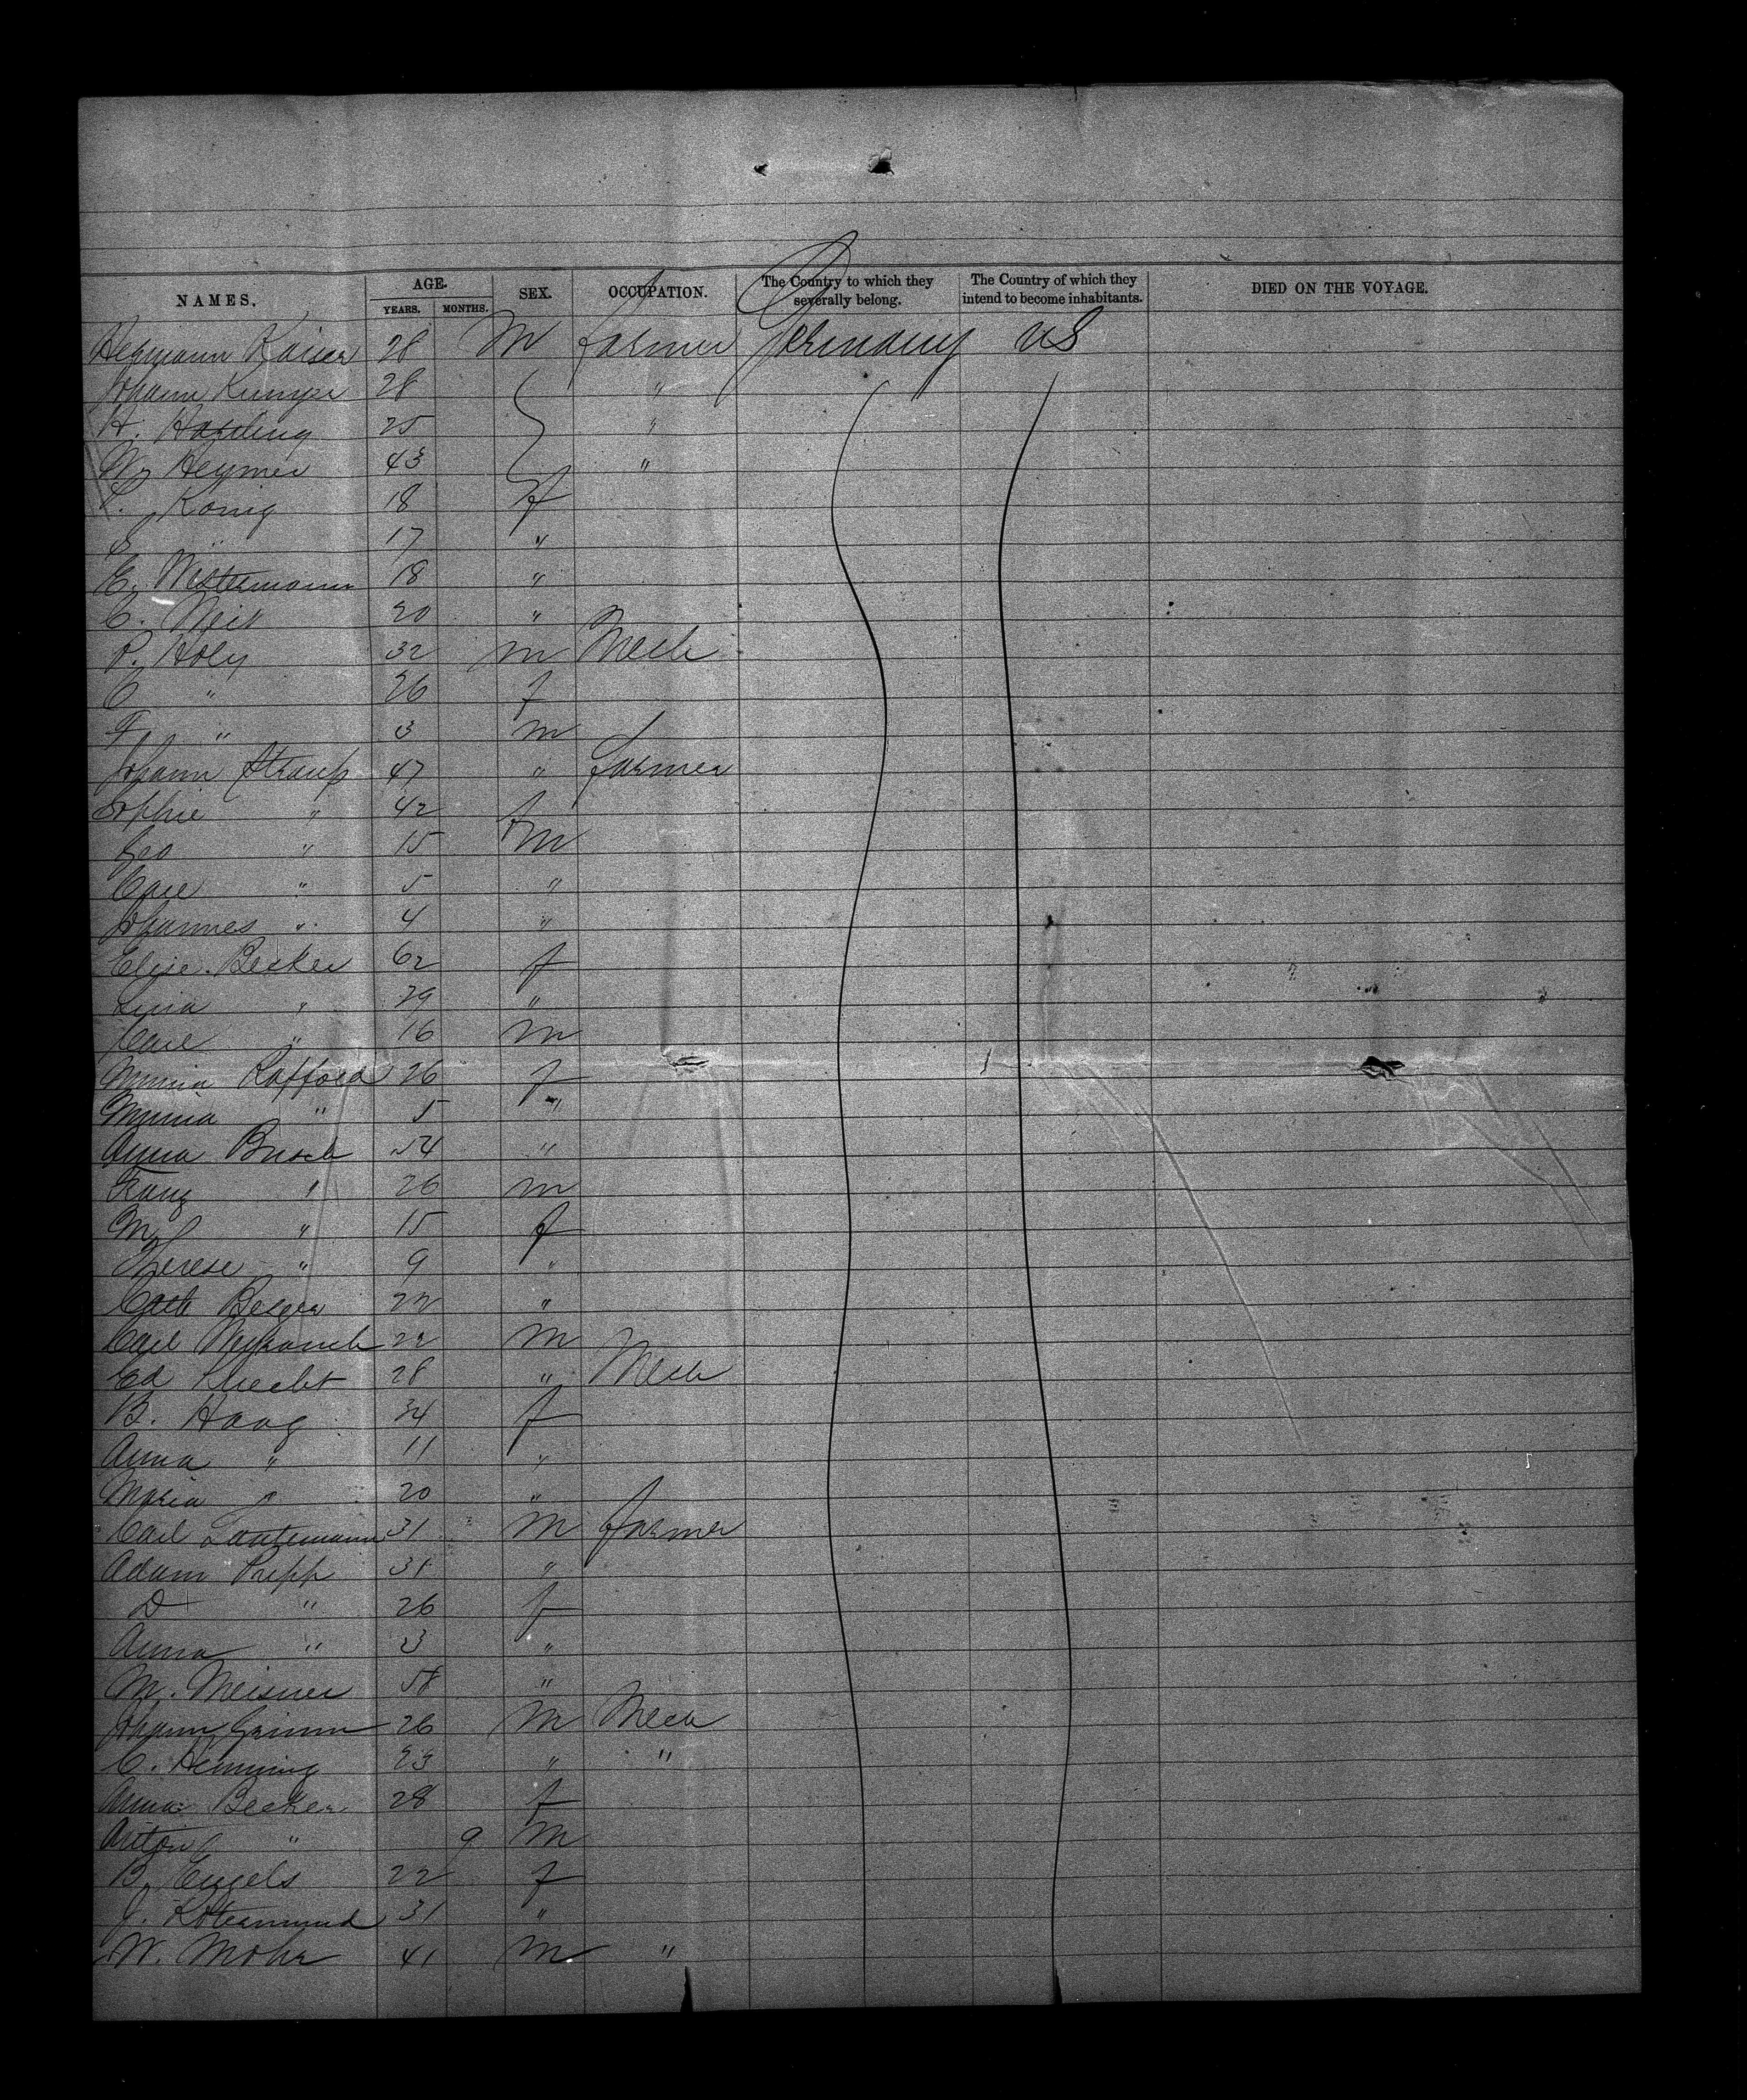 NAMES. AGE. SEX. OCCUPATION. The Country to which they severally belong. The Country of which they intend to become inhabitants. DIED ON THE VOYAGE.
YEARS. MONTHS.
Hermann Kaiser 28 M farmer Germany US
Johann Kumpe 28 "
H. Harding 25 "
Wm Heymer 43 "
König 18 f
" 17 "
E. Westermann 18 "
C. Neit 20 "
P. Holy 32 m Mech
C " 26 f
F " 3 m
Johann Straup 47 " farmer
Sophie " 42 f
Geo " 15 m
Carl " 5 "
Johannes " 4 "
Elise Becker 62 f
Lina " 29 "
Carl " 16 m
Minna Raffoed 26 f
Minna " 5 "
Anna Busch 54 "
Franz " 26 m
M " 15 f
Therese " 9 "
Cath Berger 22 "
Carl 22 m
Ed Knecht 28 " Mech
B. Haag 34 f
Anna " 11 "
Maria " 20 "
Carl Lautemann 31 m farmer
Adam Pripp 31 "
D " 26 f
Anna " 3 "
M. Meisner 58 "
Johann Grimm 26 m Mech
C. Henning 23 " "
Anna Becker 28 f
Anton " 9 m
B. Engels 22 f
J. Rotermund 31 "
W. Mohr 41 m "